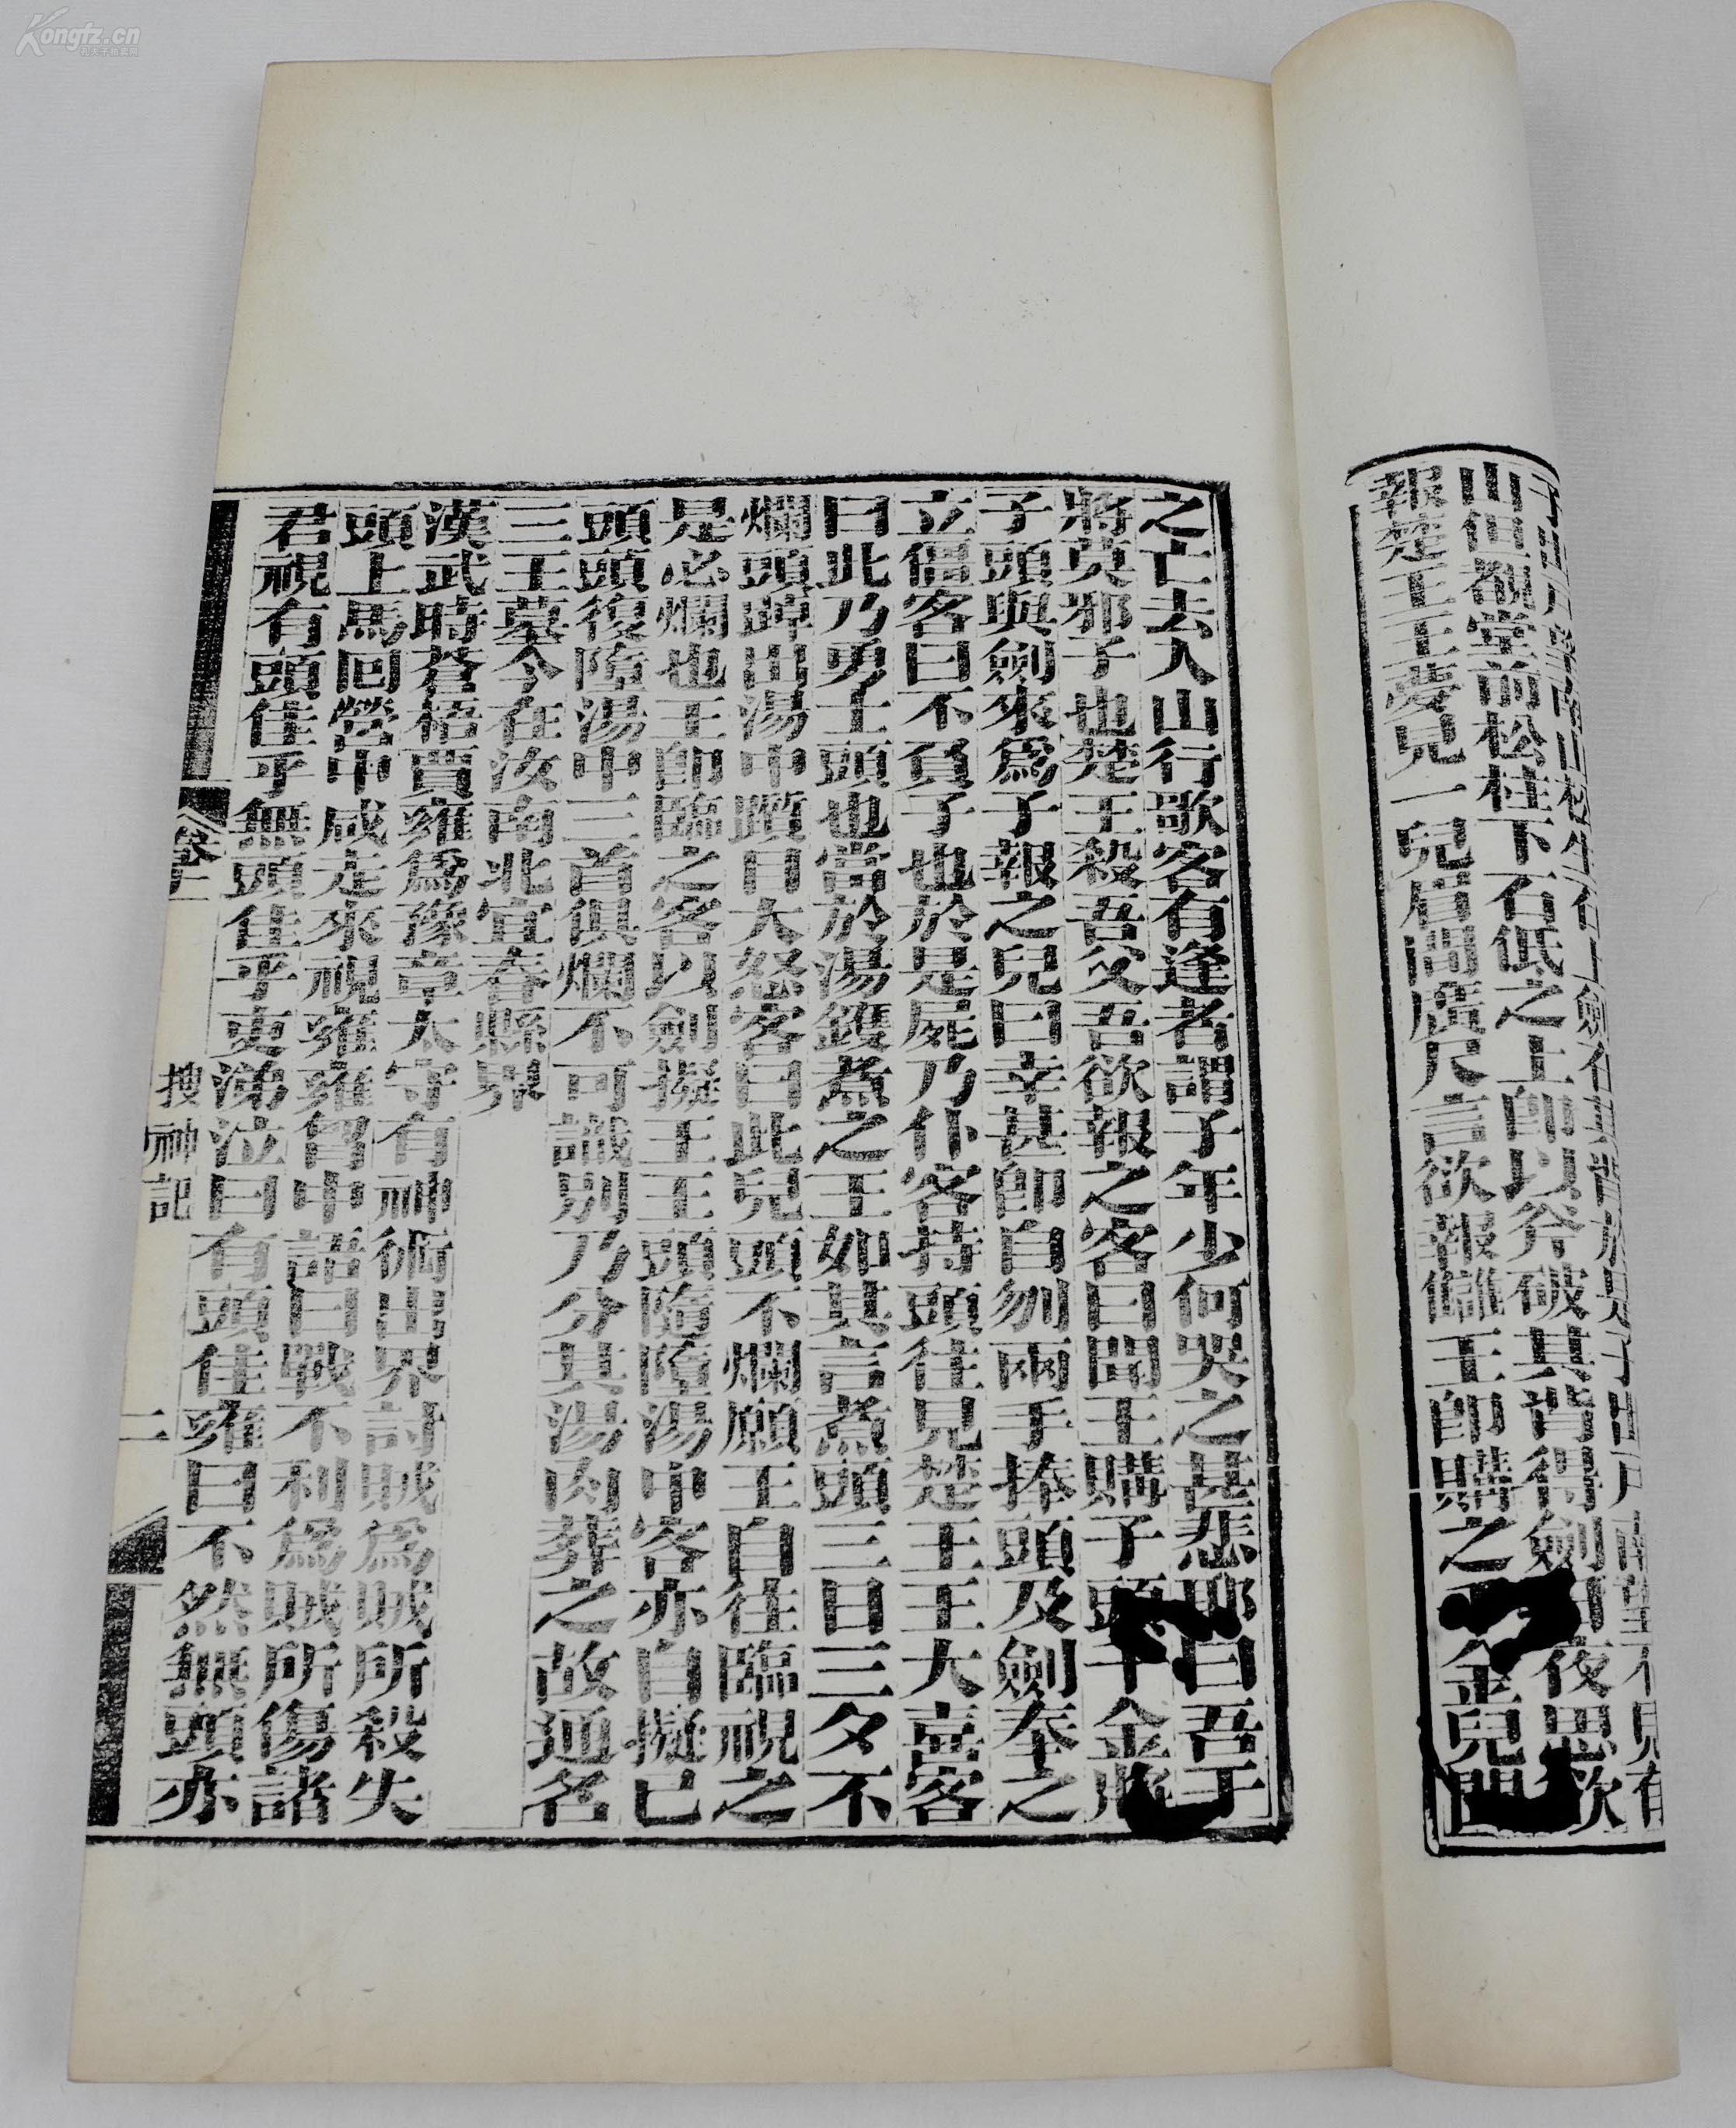 山但覩堂前松柱下石低之上即以斧破其背得劍日夜思欲
報楚王王夢見一兒眉間廣尺言欲報讎王即購之千金兒聞
之亡去入山行歌客有逢者謂子年少何哭之甚悲耶曰吾干
將莫邪子也楚王殺吾父吾欲報之客曰聞王購子頭千金將
子頭與劍來爲子報之兒曰幸甚即自刎兩手捧頭及劍奉之
立僵客曰不負子也於是屍乃仆客持頭往見楚王王大喜客
曰此乃勇士頭也當於湯鑊煮之王如其言煮頭三日三夕不
爛頭踔出湯中躓目大怒客曰此兒頭不爛願王自往臨視之
是必爛也王即臨之客以劍擬王王頭隨墮湯中客亦自擬已
頭頭復墮湯中三首俱爛不可識別乃分其湯肉葬之故通名
三王墓今在汝南北宜春縣界
漢武時蒼梧賈雍爲豫章太守有神術出界討賊爲賊所殺失
頭上馬回營中咸走來視雍雍胷中語曰戰不利爲賊所傷諸
君視有頭佳乎無頭佳乎吏涕泣曰有頭佳雍曰不然無頭亦
搜神記
二
Kongfz.cn